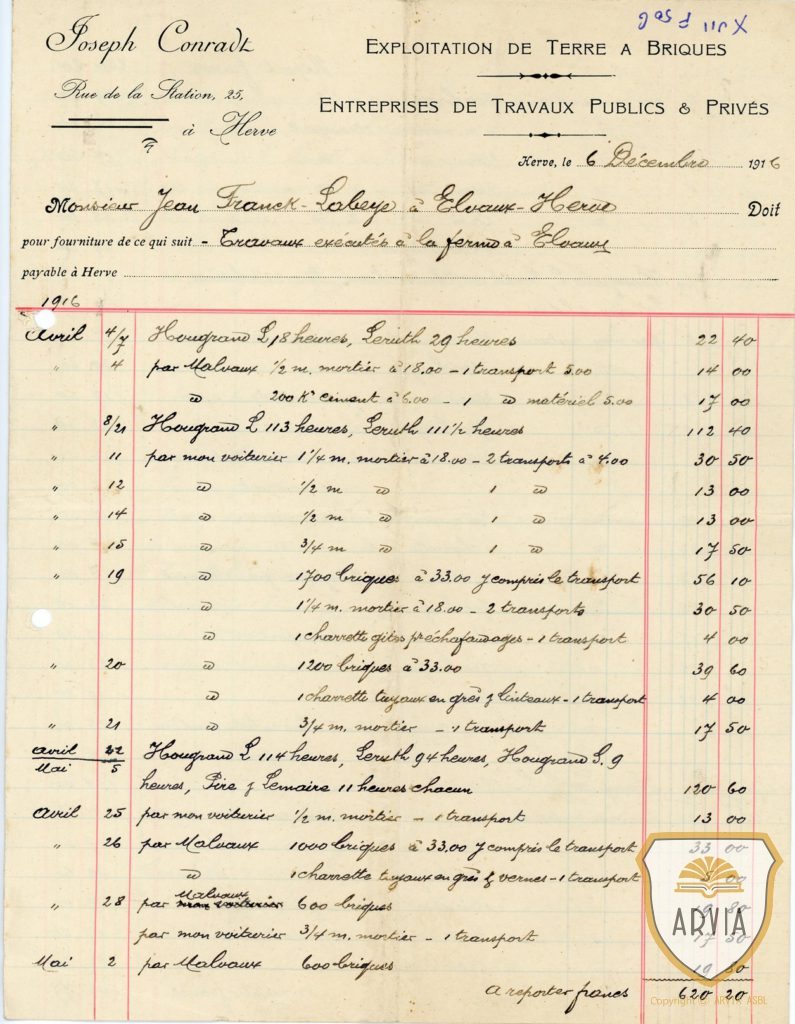 XVII F 506
Joseph Conradt
Rue de la Station, 25,
à Herve
EXPLOITATION DE TERRE A BRIQUES
ENTREPRISES DE TRAVAUX PUBLICS & PRIVÉS
Herve, le 6 Décembre 1916
Monsieur Jean Franck-Labeye à Elvaux-Herve Doit
pour fourniture de ce qui suit - Travaux exécutés à la ferme à Elvaux
payable à Herve
1916
Avril 4/7 Hougrand L 18 heures, Leruth 29 heures 22 40
" 4 par Malvaux 1/2 m. mortier à 18.00 - 1 transport 5.00 14 00
id 200 Ks ciment à 6.00 - 1 id matériel 5.00 17 00
" 8/21 Hougrand L 113 heures, Leruth 111 1/2 heures 112 40
" 11 par mon voiturier 1 1/4 m. mortier à 18.00 - 2 transports à 4.00 30 50
" 12 id 1/2 m id 1 id 13 00
" 14 id 1/2 m id 1 id 13 00
" 15 id 3/4 m id 1 id 17 50
" 19 id 1700 briques à 33.00 y compris le transport 56 10
id 1 1/4 m. mortier à 18.00 - 2 transports 30 50
id 1 charrette gites pr échafaudages - 1 transport 4 00
" 20 id 1200 briques à 33.00 39 60
id 1 charrette tuyaux en grès & linteaux - 1 transport 4 00
" 21 id 3/4 m. mortier - 1 transport 17 50
Avril 22 Hougrand L 114 heures, Leruth 94 heures, Hougrand G. 9
Mai 5 heures, Pire & Lemaire 11 heures chacun 120 60
Avril 25 par mon voiturier 1/2 m. mortier - 1 transport 13 00
" 26 par Malvaux 1000 briques à 33.00 y compris le transport 33 00
id 1 charrette tuyaux en grès & vernes - 1 transport 5 00
" 28 par Malvaux mon voiturier 600 briques 19 80
par mon voiturier 3/4 m. mortier - 1 transport 17 50
Mai 2 par Malvaux 600 briques 19 80
A reporter francs 620 20
ARVIA
Copyright © ARVIA ASBL